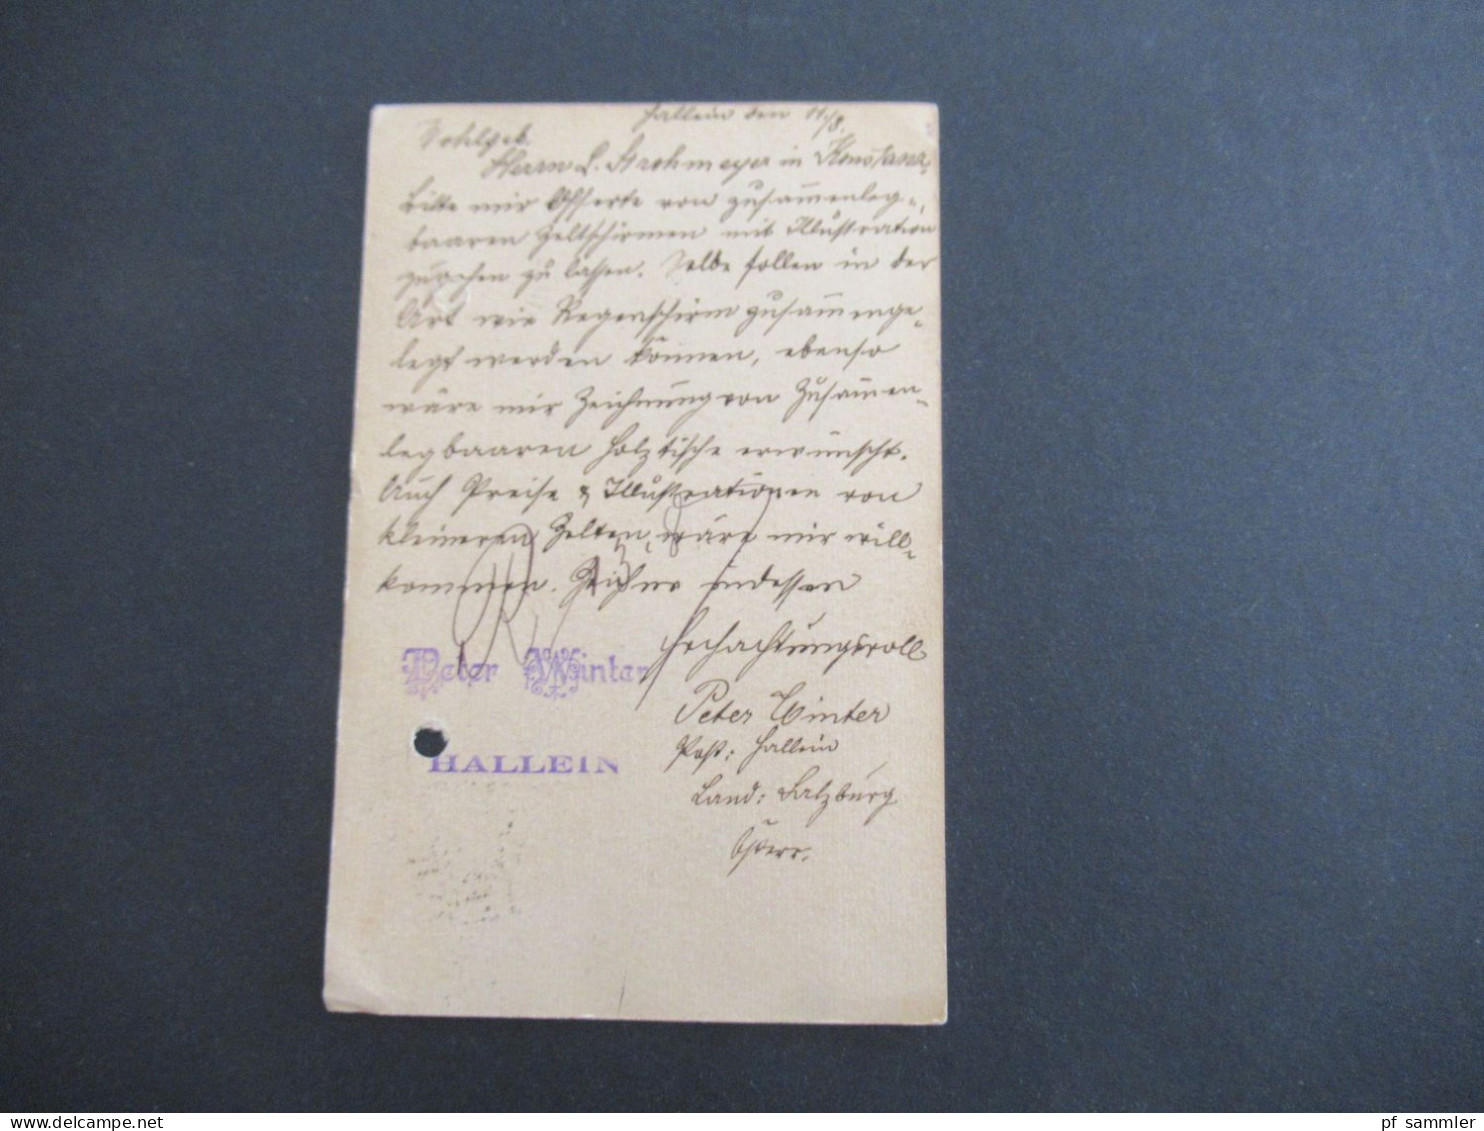 Hallein den 11/8.
Wohlgeb.
Herrn L. Strohmeyer in Konstanz
Bitte mir Offerte von zusammenleg-
baaren Zeltschirmen mit Illustration
zugehen zu lassen. Selbe sollen in der
Art wie Regenschirm zusammenge-
legt werden können, ebenso
wäre mir Zeichnung von Zusammen-
legbaaren Holztische erwünscht.
Auch Preise & Illustrationen von
kleineren Zelten, wäre mir will-
kommen. Zeichne indessen
Hochachtungsvoll
Peter Winter
Peter Winter
Post: Hallein
HALLEIN
Land: Salzburg
Österr.
pf sammler